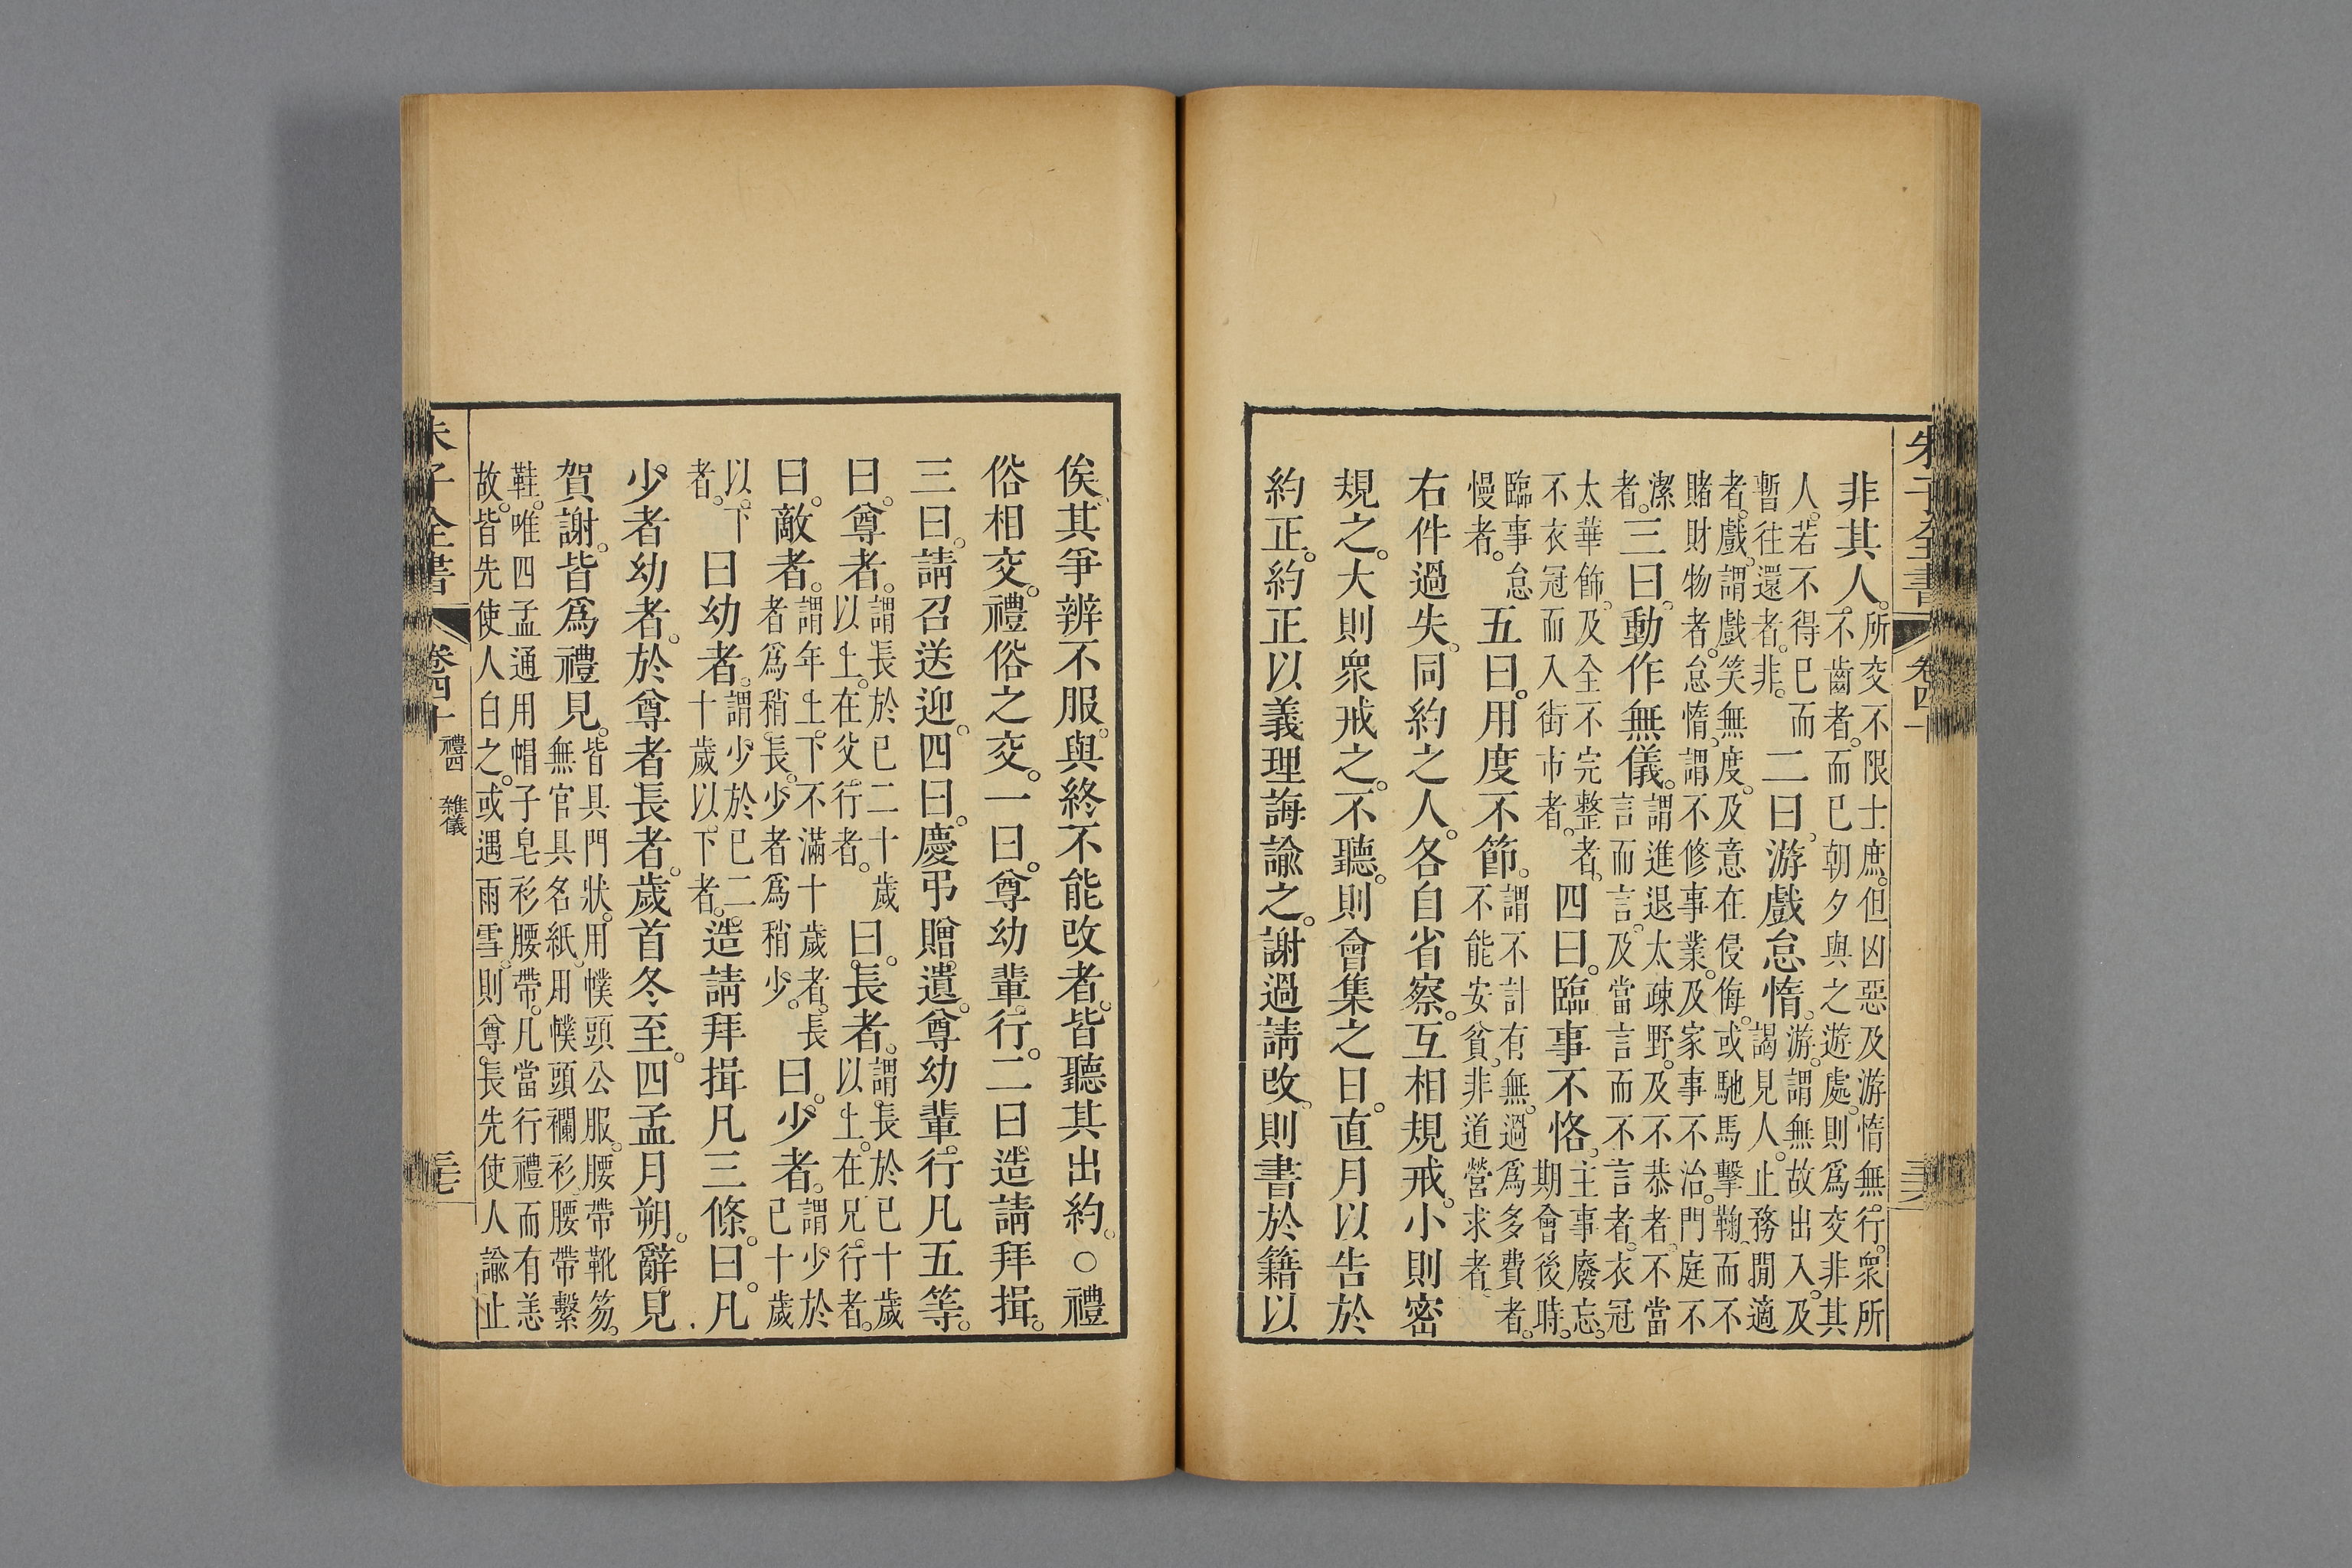 朱子全書 卷四十
非其人。所交不限士庶。但凶惡及游惰無行。衆所不齒者。而已朝夕與之遊處。則爲交非其
人。若不得已而暫往還者。非。二曰。游戲怠惰。游。謂無故出入。及謁見人。止務閒適
者。戲。謂戲笑無度。及意在侵侮。或馳馬擊鞠。而不賭財物者。怠惰。謂不修事業。及家事不治。門庭不
潔者。三曰。動作無儀。謂進退太疎野。及不恭者。不當言而言。及當言而不言者。衣冠
太華飾。及全不完整者。不衣冠而入街市者。四曰。臨事不恪。主事廢忘。期會後時。
臨事怠慢者。五曰。用度不節。謂不計有無。過爲多費者。不能安貧。非道營求者。
右件過失。同約之人。各自省察。互相規戒。小則密
規之。大則衆戒之。不聽。則會集之日。直月以告於
約正。約正以義理誨諭之。謝過請改。則書於籍以
俟。其爭辨不服。與終不能改者。皆聽其出約。○禮
俗相交。禮俗之交。一曰。尊幼輩行。二曰造請拜揖。
三曰。請召送迎。四曰。慶弔贈遺。尊幼輩行凡五等。
曰。尊者。謂長於已二十歲以上。在父行者。曰。長者。謂長於已十歲以上。在兄行者。
曰。敵者。謂年上下不滿十歲者。長者爲稍長。少者爲稍少。曰。少者。謂少於已十歲
以下者。曰幼者。謂少於已二十歲以下者。造請拜揖凡三條。曰。凡
少者幼者。於尊者長者。歲首冬至。四孟月朔。辭見
賀謝。皆爲禮見。皆具門狀。用幞頭公服。腰帶靴笏。無官具名紙。用幞頭襴衫。腰帶繫
鞋。唯四孟通用帽子皂衫腰帶。凡當行禮而有恙故。皆先使人白之。或遇雨雪。則尊長先使人諭止
朱子全書 卷四十 禮四 雜儀